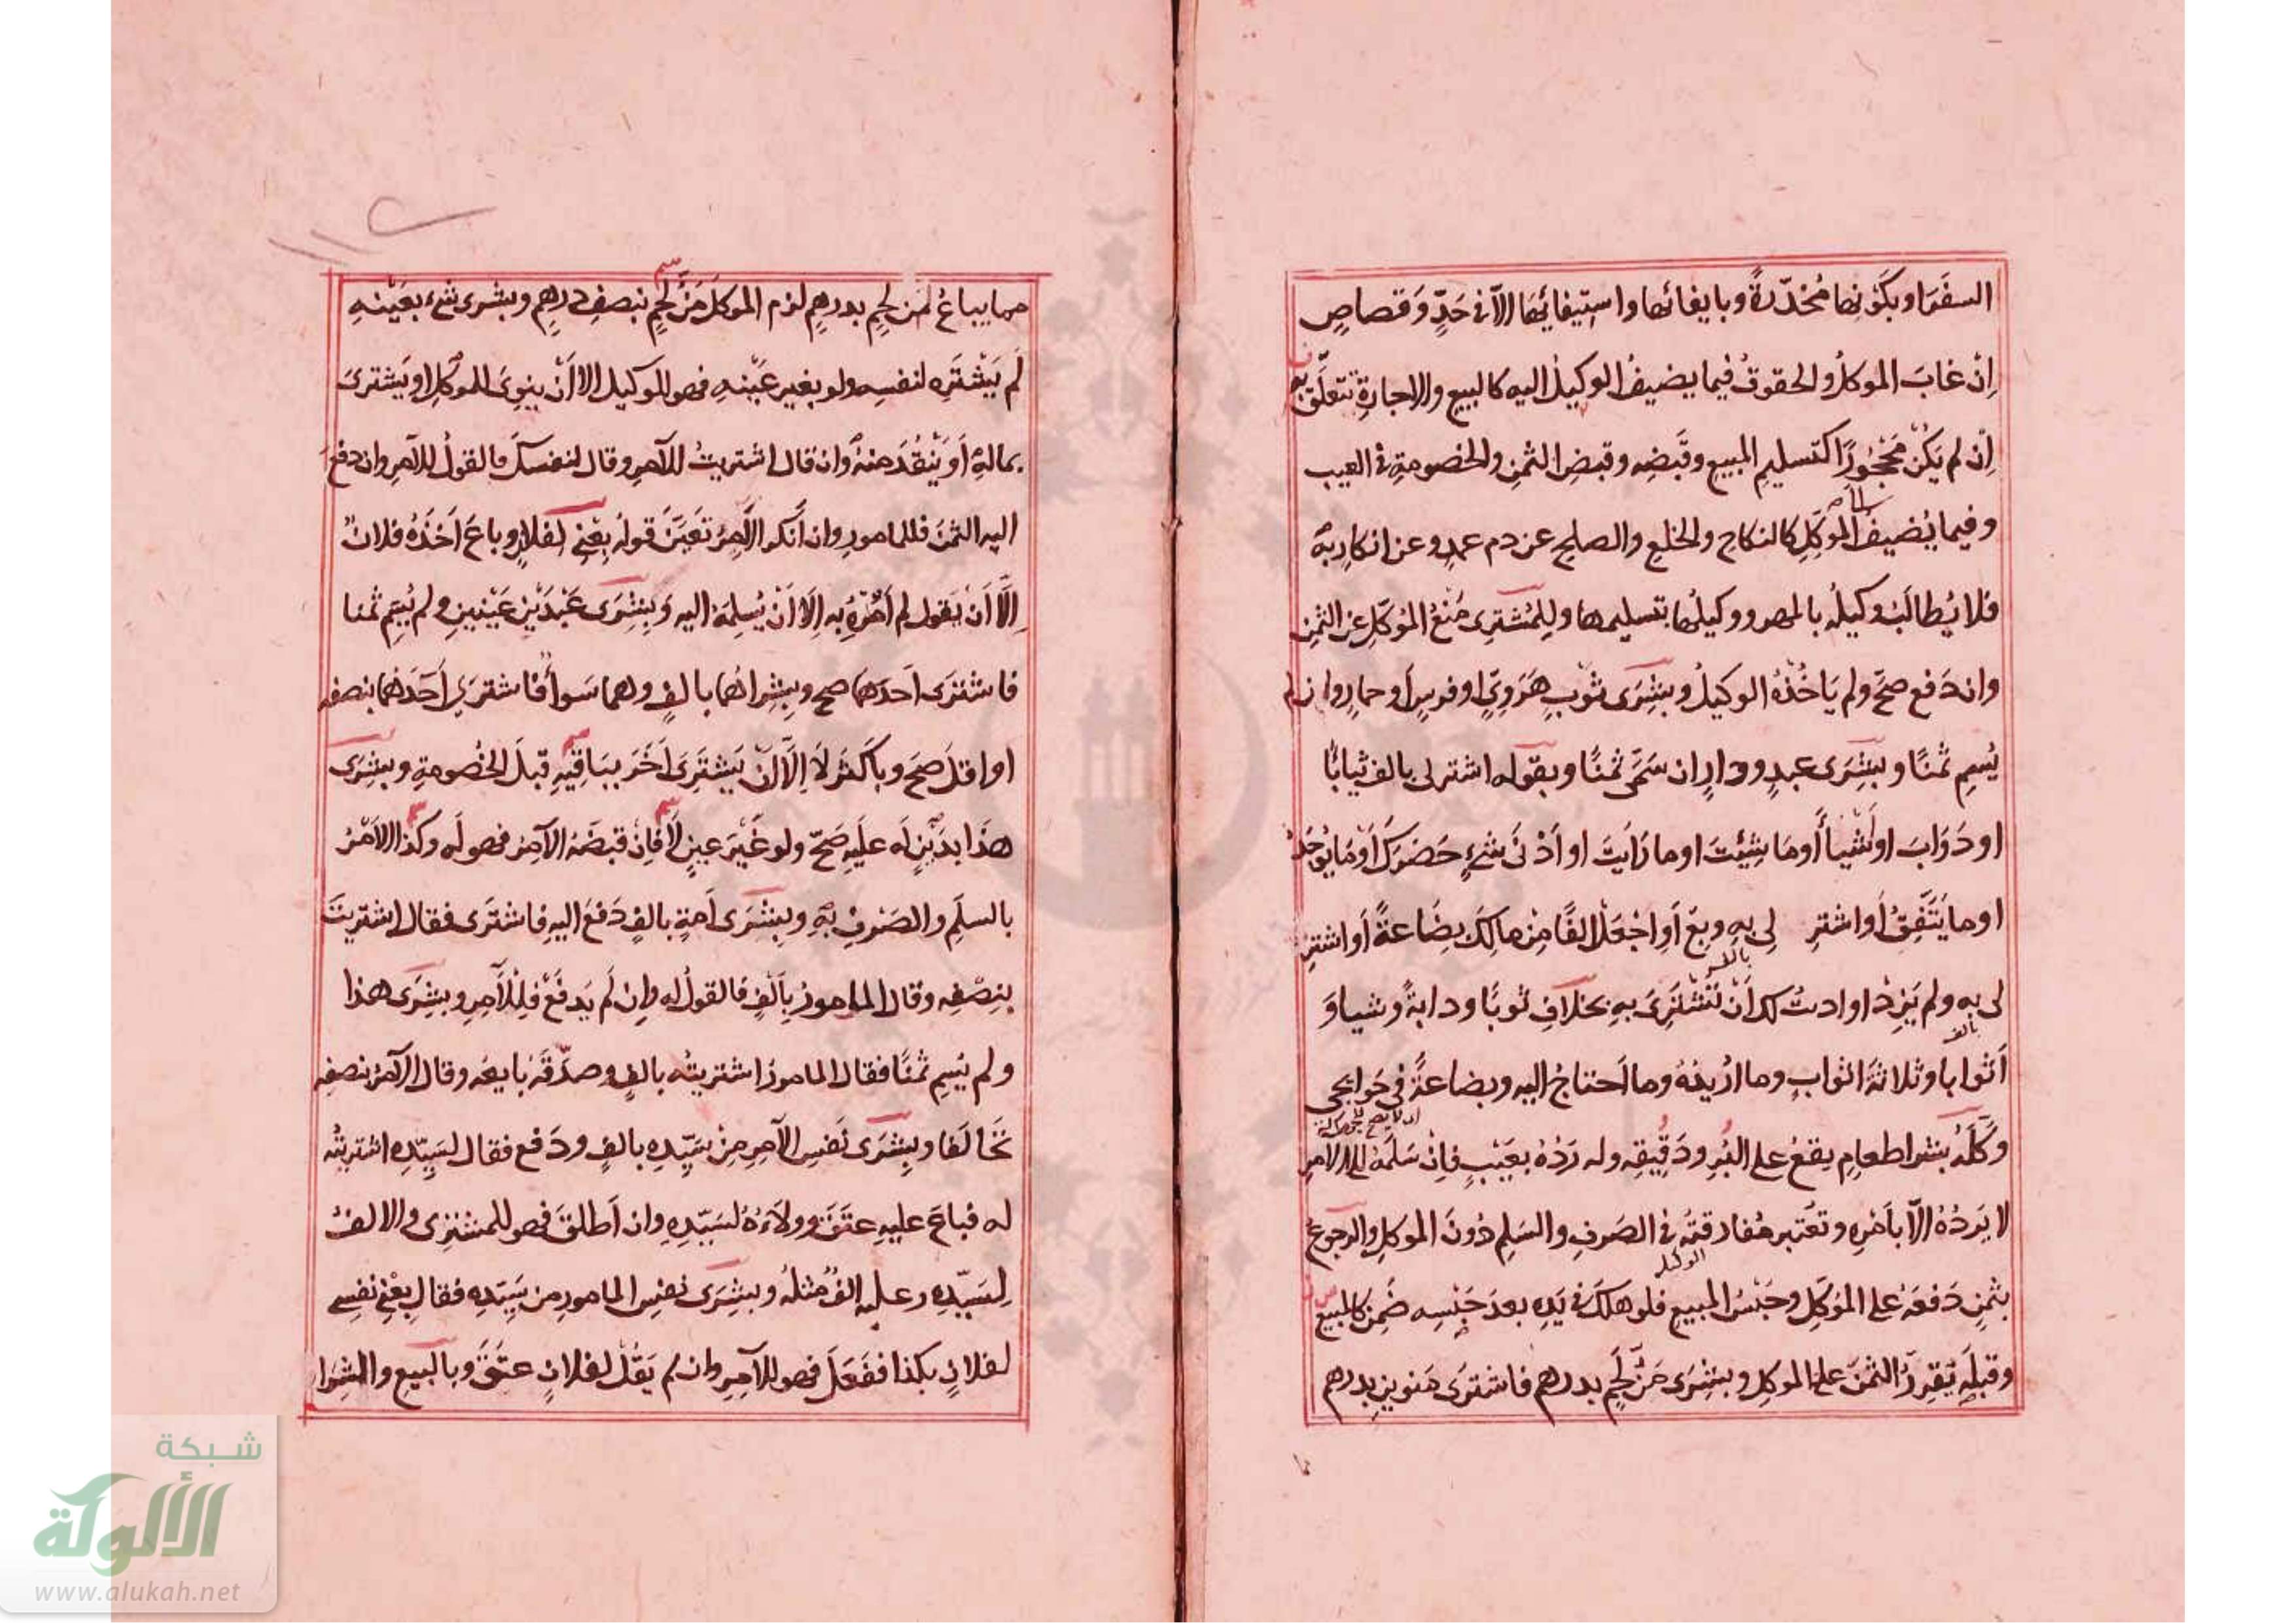 السفرَ او بكَونِها مُخدّرةً وبايفائها واستيفائِها الّا في حَدٍّ وَقصاصٍ
اِنْ غابَ الموكلُ والحقوقُ فيما يضيفُ الوكيلُ اليه كالبيعِ والاجارةِ تتعلّق به
اِنْ لم يَكُنْ مَحْجُورًا كتسليمِ المبيعِ وقَبضِه وقبضِ الثمنِ والخصومةِ في العيب
وفيما يُضيفُ الموَكِّلِ كالنكاحِ والخلعِ والصلحِ عن دم عمدٍ وعن انكارٍ بهِ
فلا يُطالَبُ وكيلُه بالمهر ووكيلُها بتسليمها ولِلمُشترِى مَنْعُ المُوكّلِ عن الثمنِ
وان دَفع صحَّ ولم يَاخُذْهُ الوكيلُ وبِشِرَى ثَوبٍ هَرَوِيّ او فرسٍ او حمارٍ وان لم
يُسمِ ثمنًا وبِشِرَى عبدٍ ودارٍ ان سَمَّى ثمنًا وبقوله اشتر لى بالف ثيابًا
او دَوَابَ او اَشياأ او مَا شِئتَ او ما رَاَيتَ او اَدْنَى شىءٍ حَضَرَكَ او مَا يُوجَدُ
او ما يَتَّفِقُ او اشترِ لِى بهِ وبِعْ اَوِ اجْعَلْ الفًا مِنْ مالِكَ بِضَاعةً اَو اشترِ
بالف
لى به ولم يَزِدْ او ادتُ لك اَنْ تَشْتَرِىَ بهِ بخلافِ ثوبًا ودابةً وشيا وَ
بالف
اَثوابا وثلاثةَ اثوابٍ وما اُرِيدُهُ وما اَحتاجُ اليه وبضاعةً فى حَوايجى
وَكَّلَهُ بشرا طعامٍ يقعُ على البُرِ ودَقيقِه وله رَدُهُ بعَيبٍ فاِنْ سَلَّمَهُ الى الامرِ
لا يَردُهُ الّا باَمْرِه وتُعتبر مُفارقتُه فى الصَرفِ والسَلمِ دُونَ الموكلِ والرجوعُ
الوكيل
بثمنٍ دَفعَهُ على المُوَكّلِ وحَبْسُ المبيعِ فلو هلكَ فى يَدِهِ بعدَ حَبْسِه ضَمِنَ كالمبيع
وقبلَه تَقرِرُ الثمنَ على الموكلِ وبِشِرَى مَنِّ لَحمٍ بدرهم فاشترَى مَنوينِ بدرهم
مما يباعُ مَن لحمٍ بدرهمٍ لزم الموكلَ مَنُّ لحمٍ بنصفِ درهمٍ وبشرى شىء بعَيْنهِ
لَم يَشْتَرِه لنفسِه ولو بغير عَيْنهِ فهو للوكيل الا اَنْ ينوِىَ للموَكّلِ او يَشترىَ
بمالِهِ اَو يَنْقُدَ منهُ وان قال اشتريتُ للآمرِ وقال لنفسكَ فالقولُ للآمرِ وان دفع
اليه الثمنَ فللمامورِ وان اَنكر الآمِرُ تَعيَّنَ قولُه بِعْنِى لفلانٍ وباعَ اَخَذَهُ فلانٌ
اِلّا اَنْ يَقول لم اٰمُرْهُ به اِلا اَنْ يُسلِمَهُ اليه وَبِشِرَى عَبْدَيْنِ عَيْنينِ ولم يُسَمِ ثمنا
فاشترَى اَحدَهما صح وبِشِرائهما بالفٍ وهما سَواأ فاشترَى اَحَدَهما بنصفه
او اقلَ صَحَ وباَكثرَ لَا اِلّا اَنْ يَشتَرِىَ اٰخَرَ بِبَاقِيْهِ قبلَ الخُصومةِ وبِشِرَى
هذَا بدَيْنٍ لَه علَيهِ صَحَّ ولو غَيرَ عينٍ لَا فاِنْ قبضَهُ الآمِرُ فهو لَه وكذا الاَمْرُ
بالسلَمِ والصَرفِ بهِ وبِشِرَى اَمةٍ بالفٍ دَفعَ اليهِ فاشتَرَى فقال اشتريتَ
بنِصْفِه وقال المامورُ بِاَلفٍ فالقولُ له وان لَم يَدفَعْ فلِلآمرِ وبِشِرَى هذا
ولم يُسمِ ثمنًا فقال المامورُ اشتريتُه بالفٍ وصدّقَه بايعُه وقال الآمرُ بنصفِه
تَحَالَفا وبِشِرَى نَفسِ الآمرِ مِنْ سَيّدِه بالفٍ ودَفع فقال لسَيّدِه اشتريتُه
له فباعَ عليه عتَقَ وولاءُهُ لسَيّدِهِ وان اَطلقَ فهو للمشترى والالفُ
لِسَيّدِهِ وعليه الفٌ مثلُه وبِشِرَى نفسِ المامورِ من سَيّدِه فقال بِعْنِى نفسِى
لفلانٍ بكذا ففَعَلَ فهو للآمِرِ وان لم يَقُلْ لفلانٍ عتَقَ وبالبيعِ والشِرَا
شبكة
الألوكة
www.alukah.net